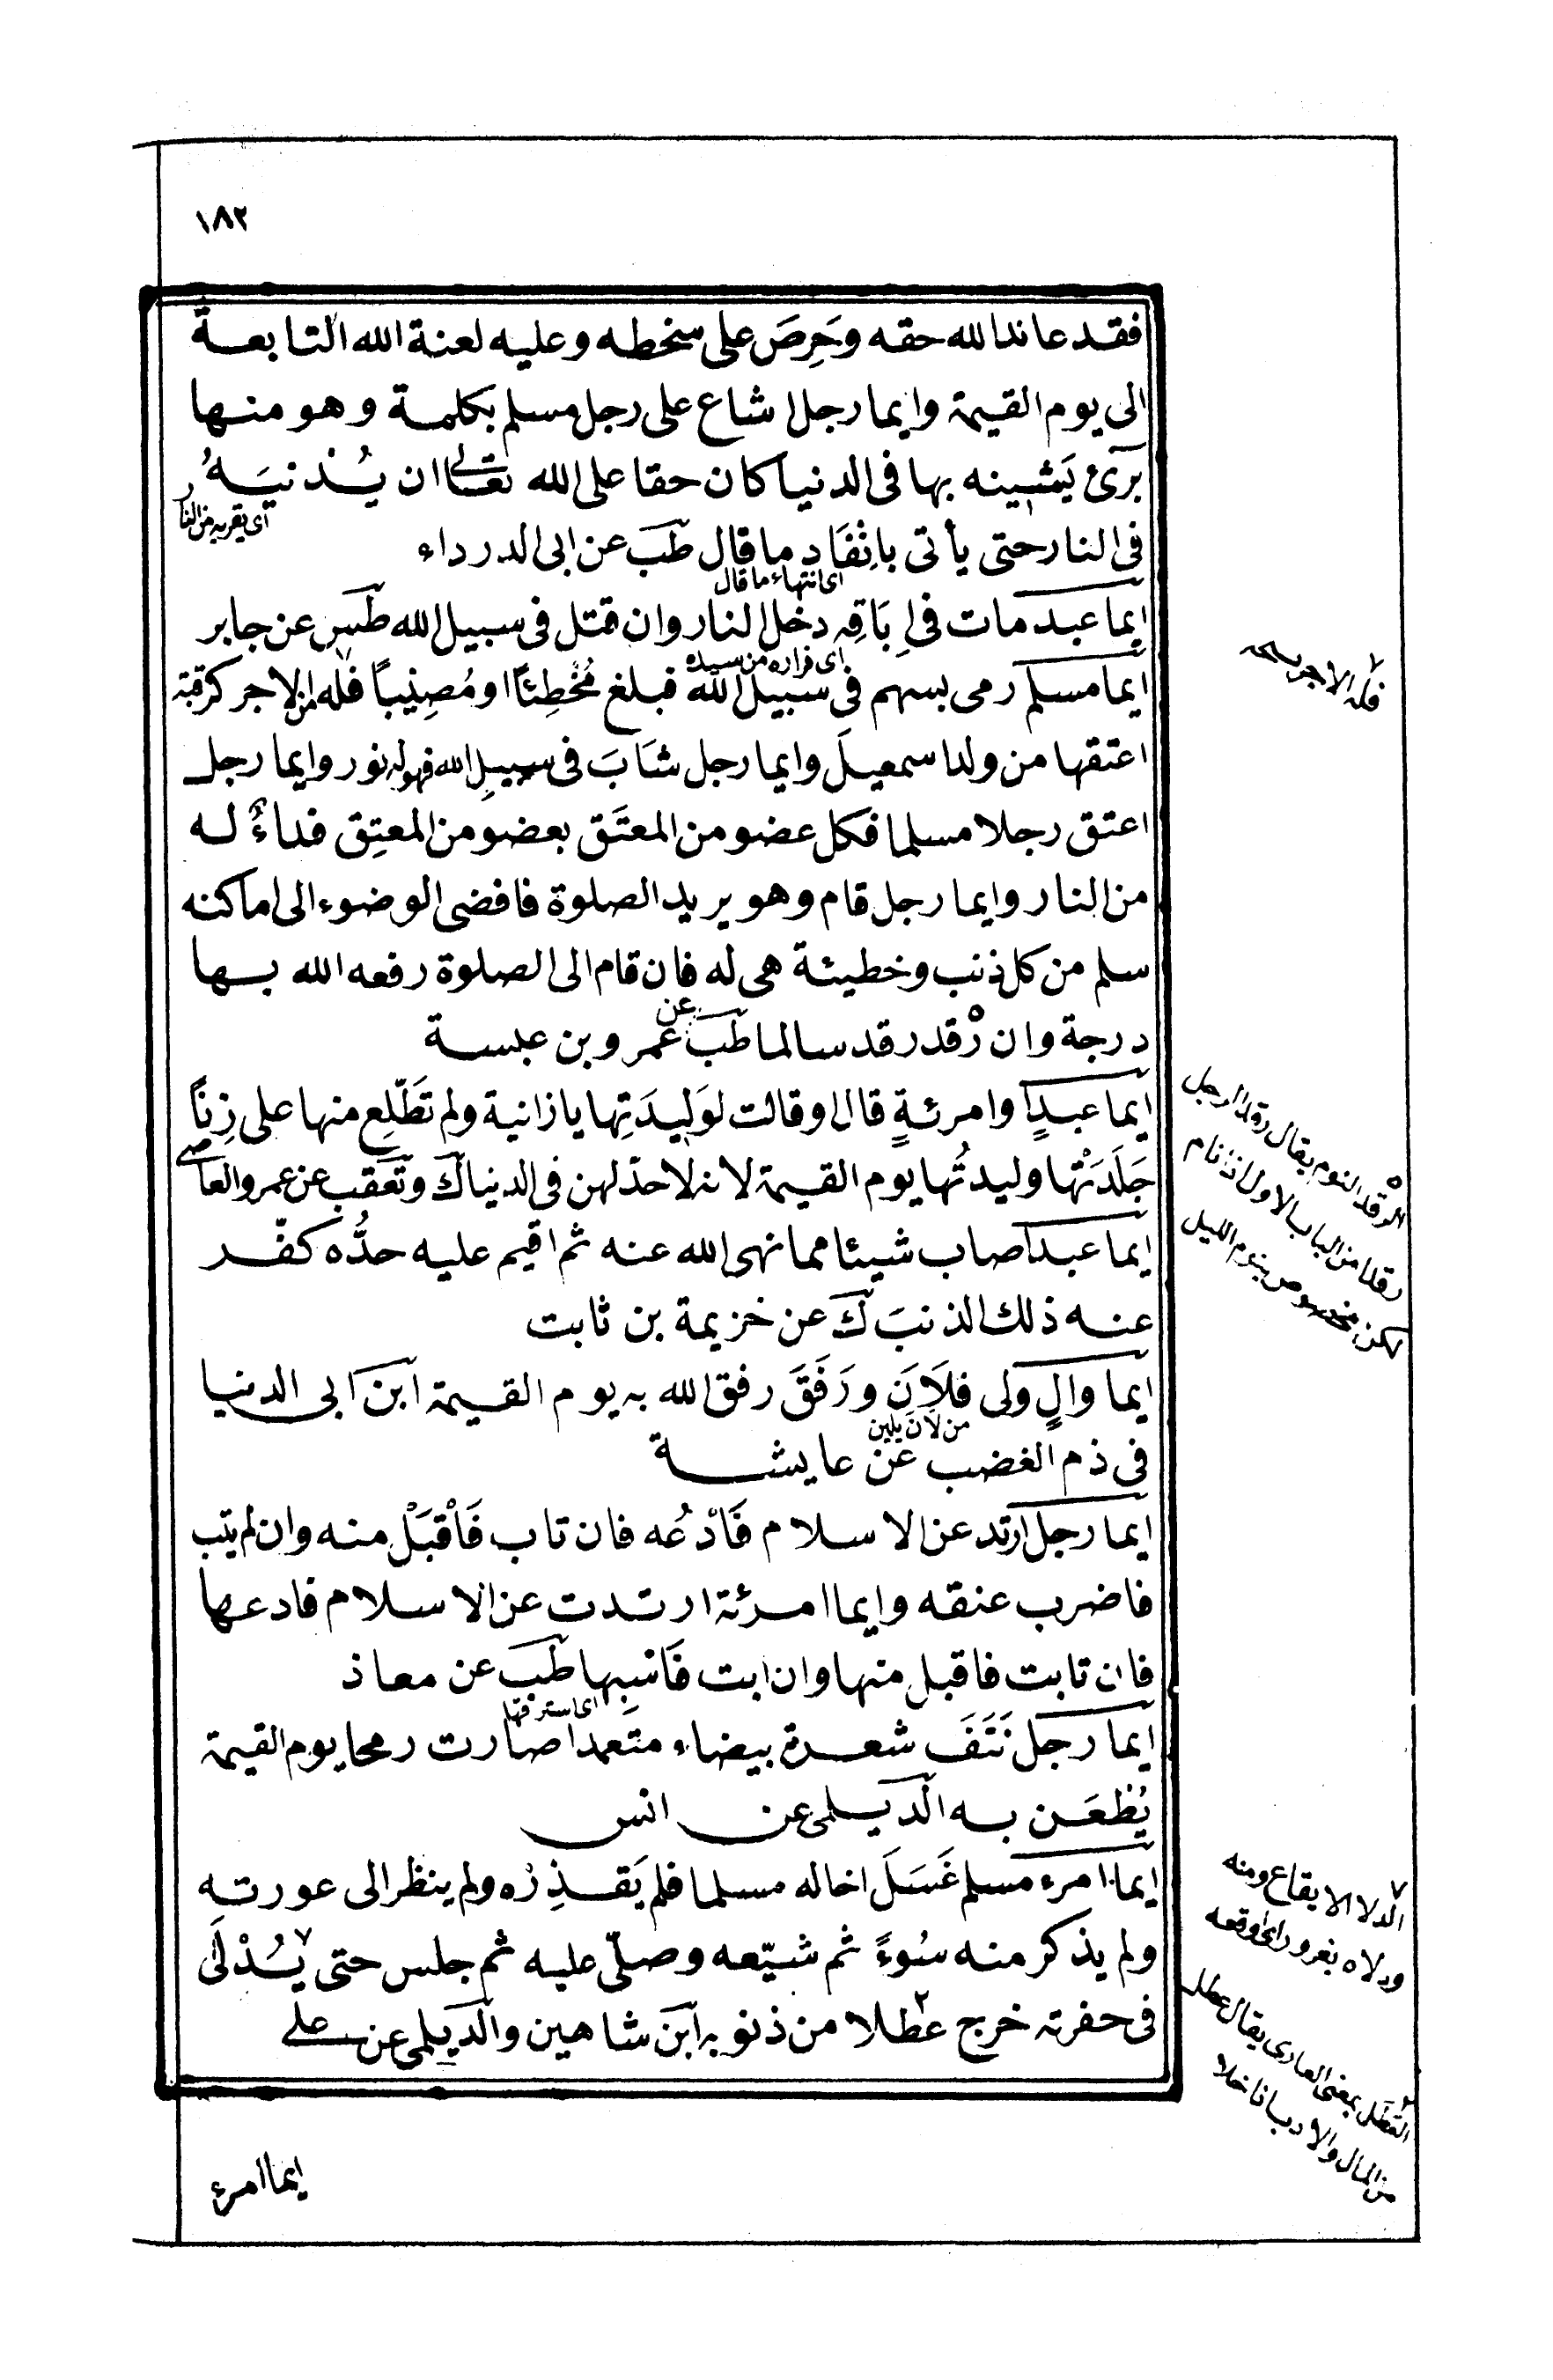 ١٨٢
فقد عاند الله حقه وحَرِصَ على سخطه وعليه لعنة الله التابعة
الى يوم القيمة وايما رجل اشاع على رجل مسلم بكلمة وهو منها
برئ يَشينه بها فى الدنيا كان حقا على الله تعالى ان يُدنيَهُ
اى يقربه من النار
فى النار حتى يأتى بانفَادِ ما قال طب عن ابى الدرداء
اى انتهاء ما قال
ايما عبد مات فى اِبَاقِه دخل النار وان قتل فى سبيل الله طس عن جابر
اى فراره من سيده
ايما مسلم رمى بسهم فى سبيل الله فبلغ مُخْطِئاً او مُصِيْباً فله من الاجر كرقبة
اعتقها من ولد اسمعيلَ وايما رجل شَابَ فى سبيلِ الله فهو له نور وايما رجل
اعتق رجلا مسلما فكل عضو من المعتَق بعضو من المعتِق فداءٌ له
من النار وايما رجل قام وهو يريد الصلوة فافضى الوضوء الى اماكنه
سلم من كل ذنب وخطيئة هى له فان قام الى الصلوة رفعه الله بها
درجة وان رقد رقد سالما طب عن عمرو بن عبسة
ايما عبدٍ او امرئةٍ قال او قالت لوَليدَتِها يا زانية ولم تَطَّلِع منها على زِنًا
جَلَدَتْها وليدتُها يوم القيمة لانه لا حدّ لهن فى الدنيا ك وتعقب عن عمرو العاصى
ايما عبد اصاب شيئا مما نهى الله عنه ثم اقيم عليه حدُّه كفّر
عنه ذلك الذنبَ ك عن خزيمة بن ثابت
ايما والٍ ولى فلاَنَ ورَفَقَ رفق الله به يوم القيمة ابن ابى الدنيا
من لان يلين
فى ذم الغضب عن عايشة
ايما رجل ارتد عن الاسلام فَادْعُه فان تاب فَاْقبَلْ منه وان لم يتب
فاضرب عنقه وايما امرئة ارتدت عن الاسلام فادعها
فان تابت فاقبل منها وان ابت فَاسْبِها طب عن معاذ
اى استرقها
ايما رجل نَتَفَ شعرة بيضاء متعمدا صارت رمحا يوم القيمة
يُطْعَن به الديلمى عن انس
ايما امرء مسلم غَسَلَ اخا له مسلما فلم يَقذِرْه ولم ينظر الى عورته
ولم يذكر منه سُوءً ثم شيّعه وصلّى عليه ثم جلس حتى يُدْلَى
فى حفرته خرج عطلا من ذنوبه ابن شاهين والديلمى عن على
ايما امرء
فله الاجر
الرقد النوم يقال رقد الرجل
رقدا من الباب الاول اذا نام
لكن مخصوص بنوم الليل
الدلا الايقاع ومنه
ودلاه بغرور اى اوقعه
العَطَل بمعنى العارى يقال عطل
من المال والادب اذا خلا